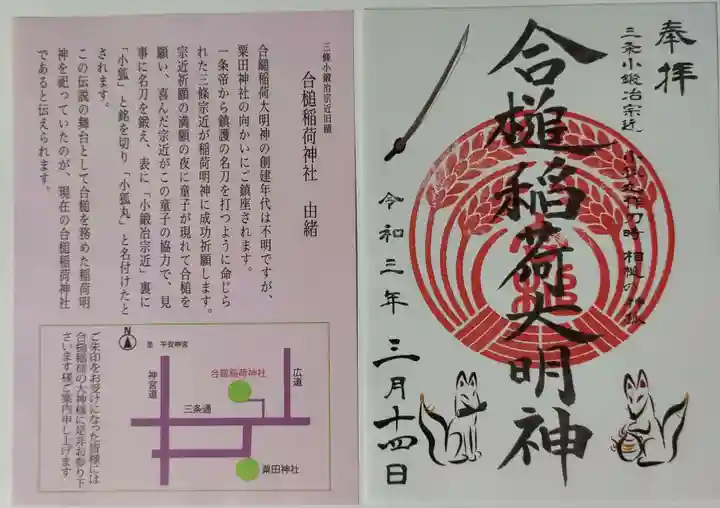 三條小鍛冶宗近旧蹟
合槌稲荷神社 由緒
合鎚稲荷大明神の創建年代は不明ですが、
粟田神社の向かいにご鎮座されます。
一条帝から鎮護の名刀を打つように命じら
れた三條宗近が稲荷明神に成功祈願します。
宗近祈願の満願の夜に童子が現れて合槌を
願い、喜んだ宗近がこの童子の協力で、見
事に名刀を鍛え、表に「小鍛冶宗近」裏に
「小狐」と銘を切り「小狐丸」と名付けたと
されます。
この伝説の舞台として合槌を務めた稲荷明
神を祀っていたのが、現在の合槌稲荷神社
であると伝えられます。
N
至 平安神宮
神宮道
合鎚稲荷神社
広道
三条通
粟田神社
ご朱印をお受けになった皆様には
合槌稲荷の大神様に是非お参り下
さいます様ご案内申し上げます
奉拝
三条小鍛冶宗近
小狐丸作刀時 相槌の神社
合槌稲荷大明神
令和三年 三月十四日